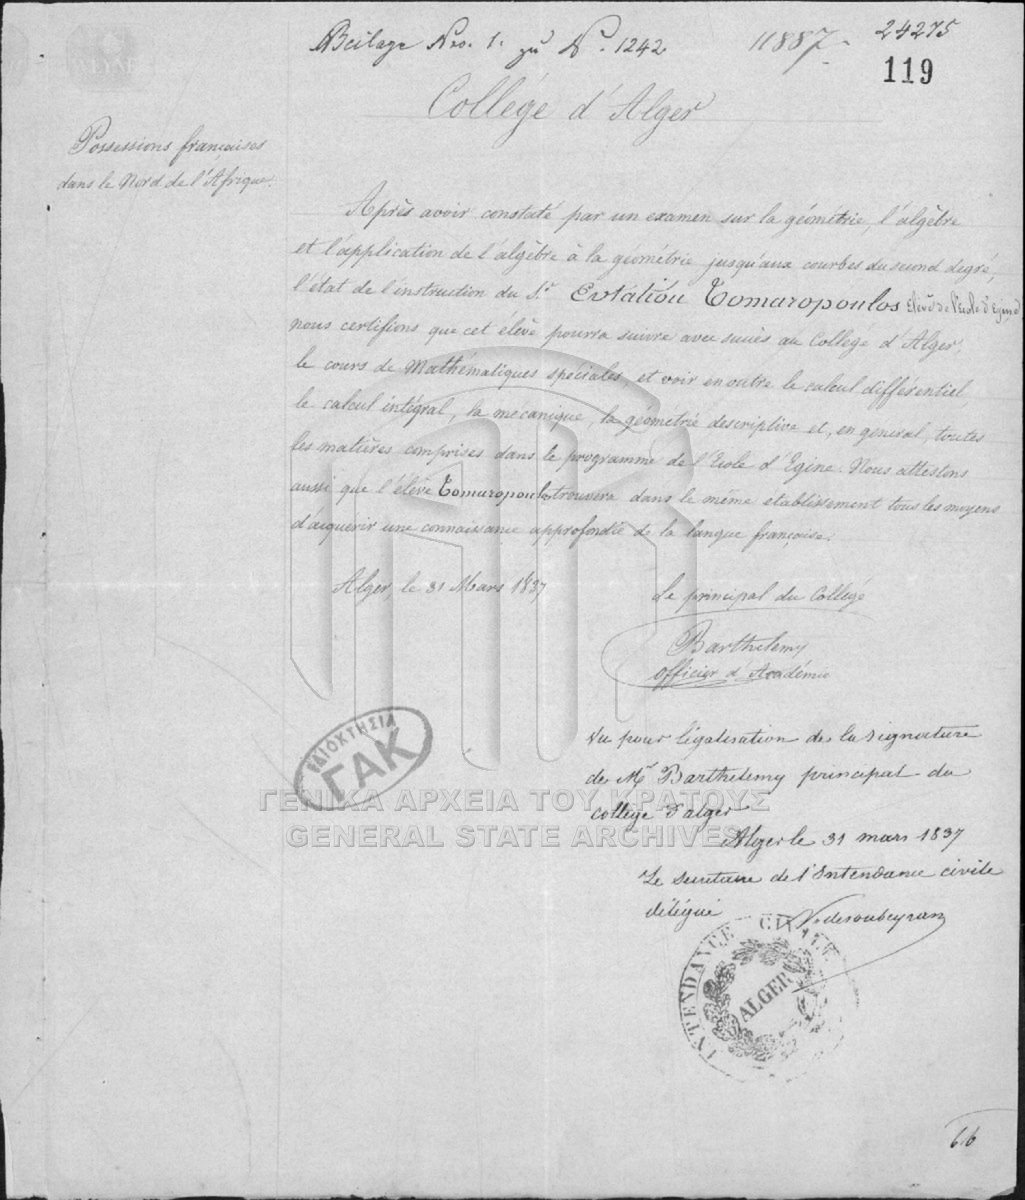 Beilage Nro. 1. zu N. 1242
11887
24275
119
Collége d'Alger
Possessions françaises
dans le Nord de l'Afrique.
Après avoir constaté par un examen sur la géométrie, l'algèbre
et l'application de l'algèbre à la géométrie jusqu'aux courbes du second degré,
l'état de l'instruction du Sr. Evtatiou Tomaropoulos Elève de l'Ecole d'Egine
nous certifions que cet élève pourra suivre avec succès au Collége d'Alger,
le cours de Mathématiques spéciales et voir en outre le calcul différentiel,
le calcul intégral, la mécanique, la géométrie descriptive et, en general, toutes
les matières comprises dans le programme de l'Ecole d'Egine. Nous attestons
aussi que l'élève Tomaropoulos trouvera dans le même etablissement tous les moyens
d'acquérir une connaissance approfondie de la langue française.
Alger, le 31 Mars 1837
Le principal du Collége
Barthelemy
officier d'Académie
Vu pour légalisation de la signature
de Mr Barthelemy principal du
collège d'alger
Alger le 31 mars 1837
Le Secretaire de l'Intendance civile
délégué
INTENDANCE CIVILE
ALGER
ΙΔΙΟΚΤΗΣΙΑ
ΓΑΚ
ΓΕΝΙΚΑ ΑΡΧΕΙΑ ΤΟΥ ΚΡΑΤΟΥΣ
GENERAL STATE ARCHIVES